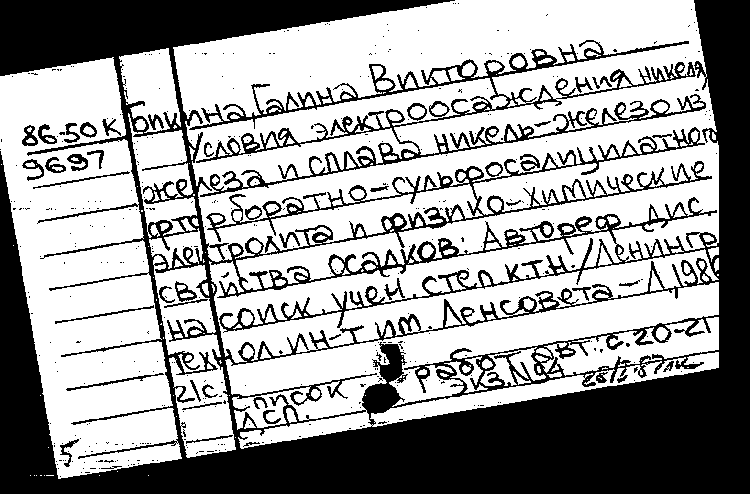 86-50К
9697
Бикина, Галина Викторовна.
Условия электроосаждения никеля,
железа и сплава никель-железо из
фторборатно-сульфосалицилатного
электролита и физико-химические
свойства осадков: Автореф. дис.
на соиск. учен. степ. к.т.н./Ленингр.
технол. ин-т им. Ленсовета.-Л,1986
21с. Список работ авт.: с.20-21
Д.СП. Экз.N94. 28/I-87
5